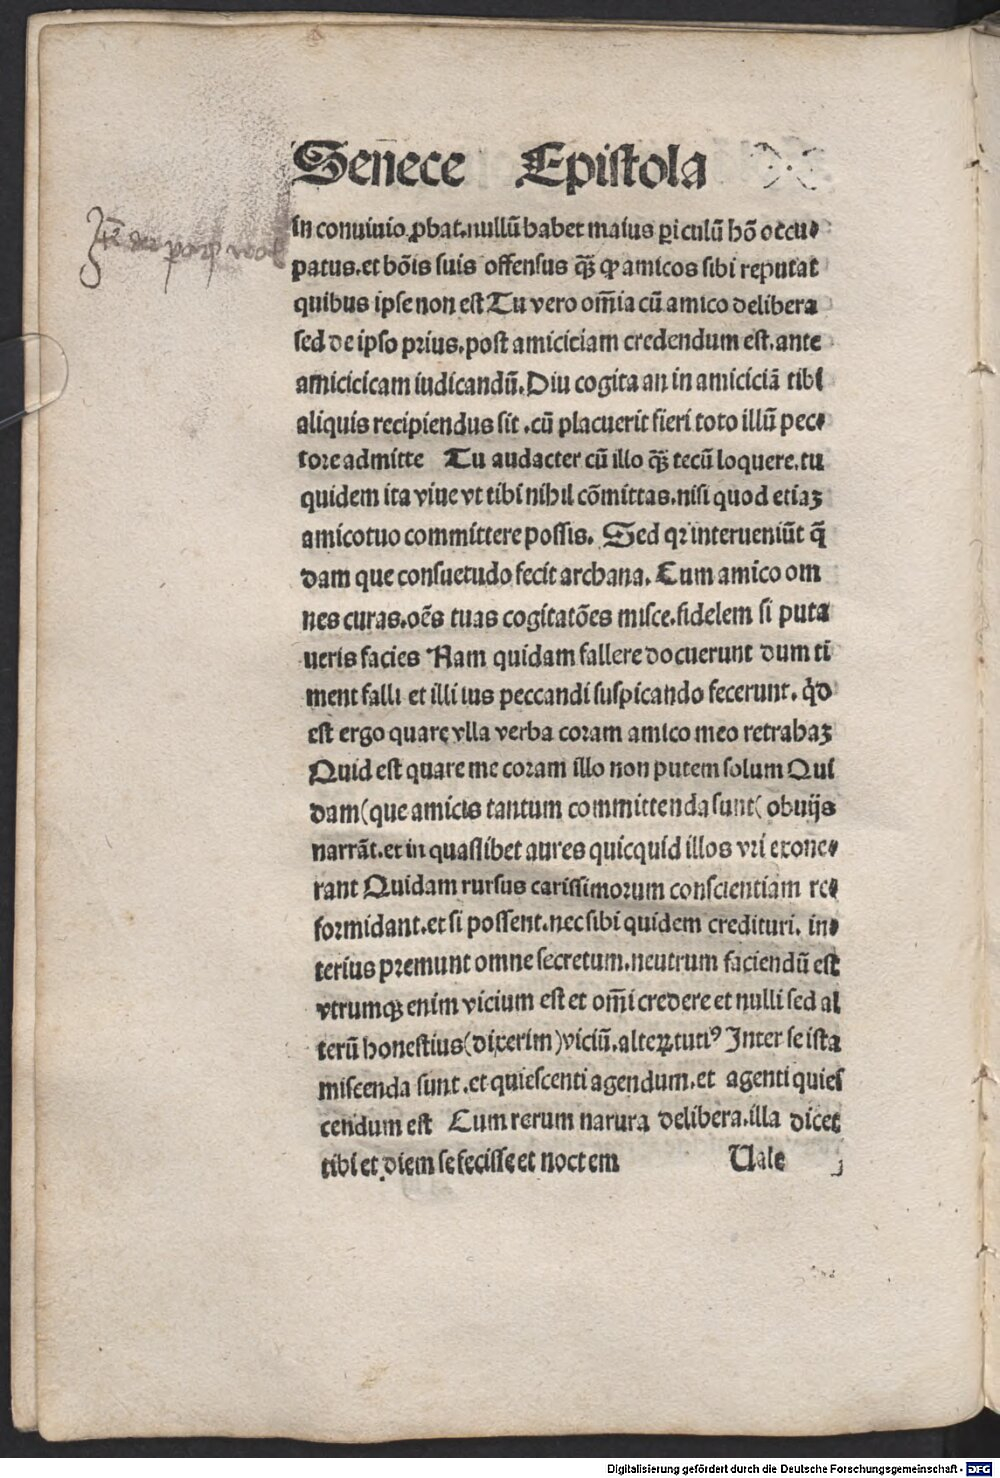 Senece Epistola
in conuiuio ꝓbat.nullū habet maius ꝑiculū hō occu⸗
patus.et bōis suis offensus qͣꝫ ꝙ amicos sibi reputat
quibus ipse non est Tu vero om̄ia cū amico delibera
sed de ipso prius.post amiciciam credendum est.ante
amicicicam iudicandū.Diu cogita an in amiciciā tibi
aliquis recipiendus sit .cū placuerit fieri toto illū pec⸗
tore admitte Tu audacter cū illo qͣꝫ tecū loquere.tu
quidem ita viue vt tibi nihil cōmittas.nisi quod etiaꝫ
amicotuo committere possis. Sed qꝛ interueniūt q̄
dam que consuetudo fecit archana. Cum amico om
nes curas.oēs tuas cogitatōes misce.fidelem si puta
ueris facies Nam quidam fallere docuerunt dum ti
ment falli et illi ius peccandi suspicando fecerunt. qͥd
est ergo quare vlla verba coram amico meo retrahaꝫ
Quid est quare me coram illo non putem solum Qui
dam(que amicis tantum committenda sunt( obuijs
narrāt.et in quaslibet aures quicquid illos vri exone⸗
rant Quidam rursus carissimorum conscientiam re⸗
formidant.et si possent.nec sibi quidem credituri. in⸗
terius premunt omne secretum.neutrum faciendū est
vtrumqꝫ enim vicium est et om̄i credere et nulli sed al
terū honestius(dixerim)viciū.alteꝝ tutiꝰ Inter se ista
miscenda sunt.et quiescenti agendum.et agenti quies
cendum est Cum rerum narura delibera.illa dicet
tibi et diem se fecisse et noctem Uale
Digitalisierung gefördert durch die Deutsche Forschungsgemeinschaft - DFG